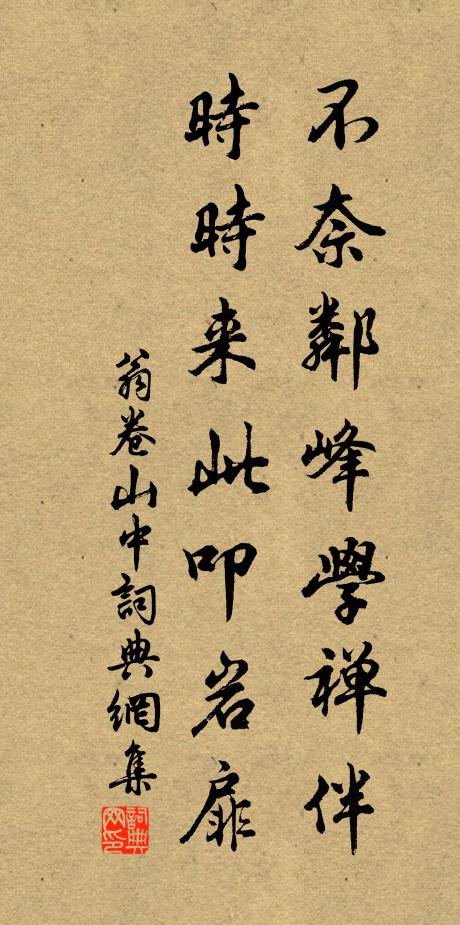 不奈鄰峰學禅伴
時時来此叩岩扉
翁卷山中詞典網集
詞典网印